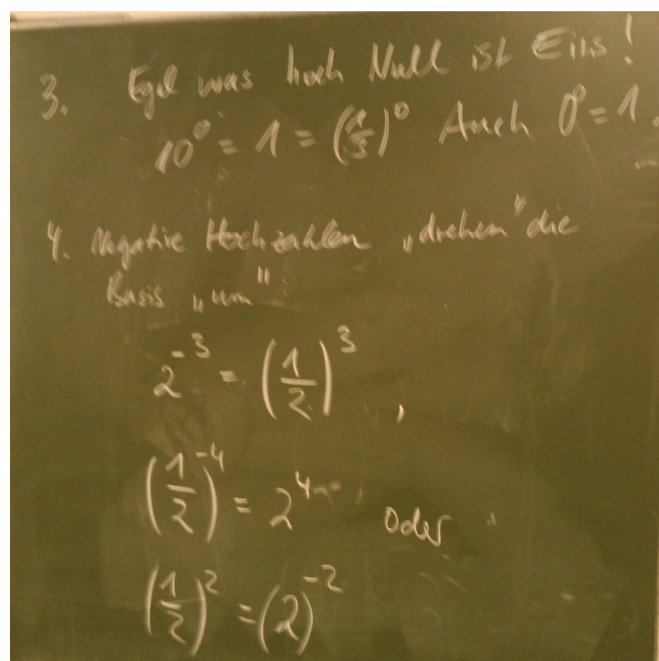 3. Egal was hoch Null ist Eins!
10⁰ = 1 = (1/3)⁰ Auch 0⁰ = 1.
4. Negative Hochzahlen „drehen" die
Basis „um":
2⁻³ = (1/2)³,
(1/2)⁻⁴ = 2⁴ oder
(1/2)² = (2)⁻²